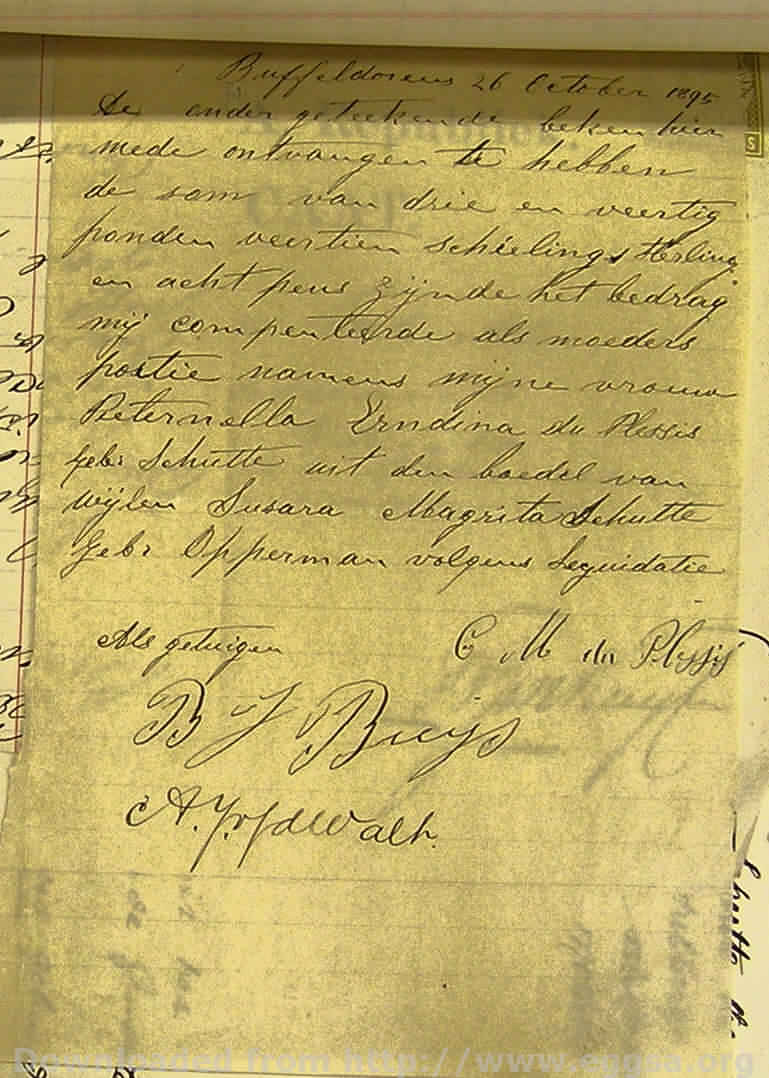 Buffeldorens 26 October 1895
De onder geteekende beken hier
mede ontvangen te hebben
de som van drie en veertig
ponden veertien schielings sterling
en acht pens zijnde het bedrag
mij compenteerde als moeders
postie namens mijne vrouw
Peternella Erndina du Plessis
geb: Schutte uit den boedel van
wijlen Susara Magrita Schutte
geb: Opperman volgens Lequidatie
Als getuigen C M du Plessis
B J Buijs
Downloaded from http://www.eggsa.org